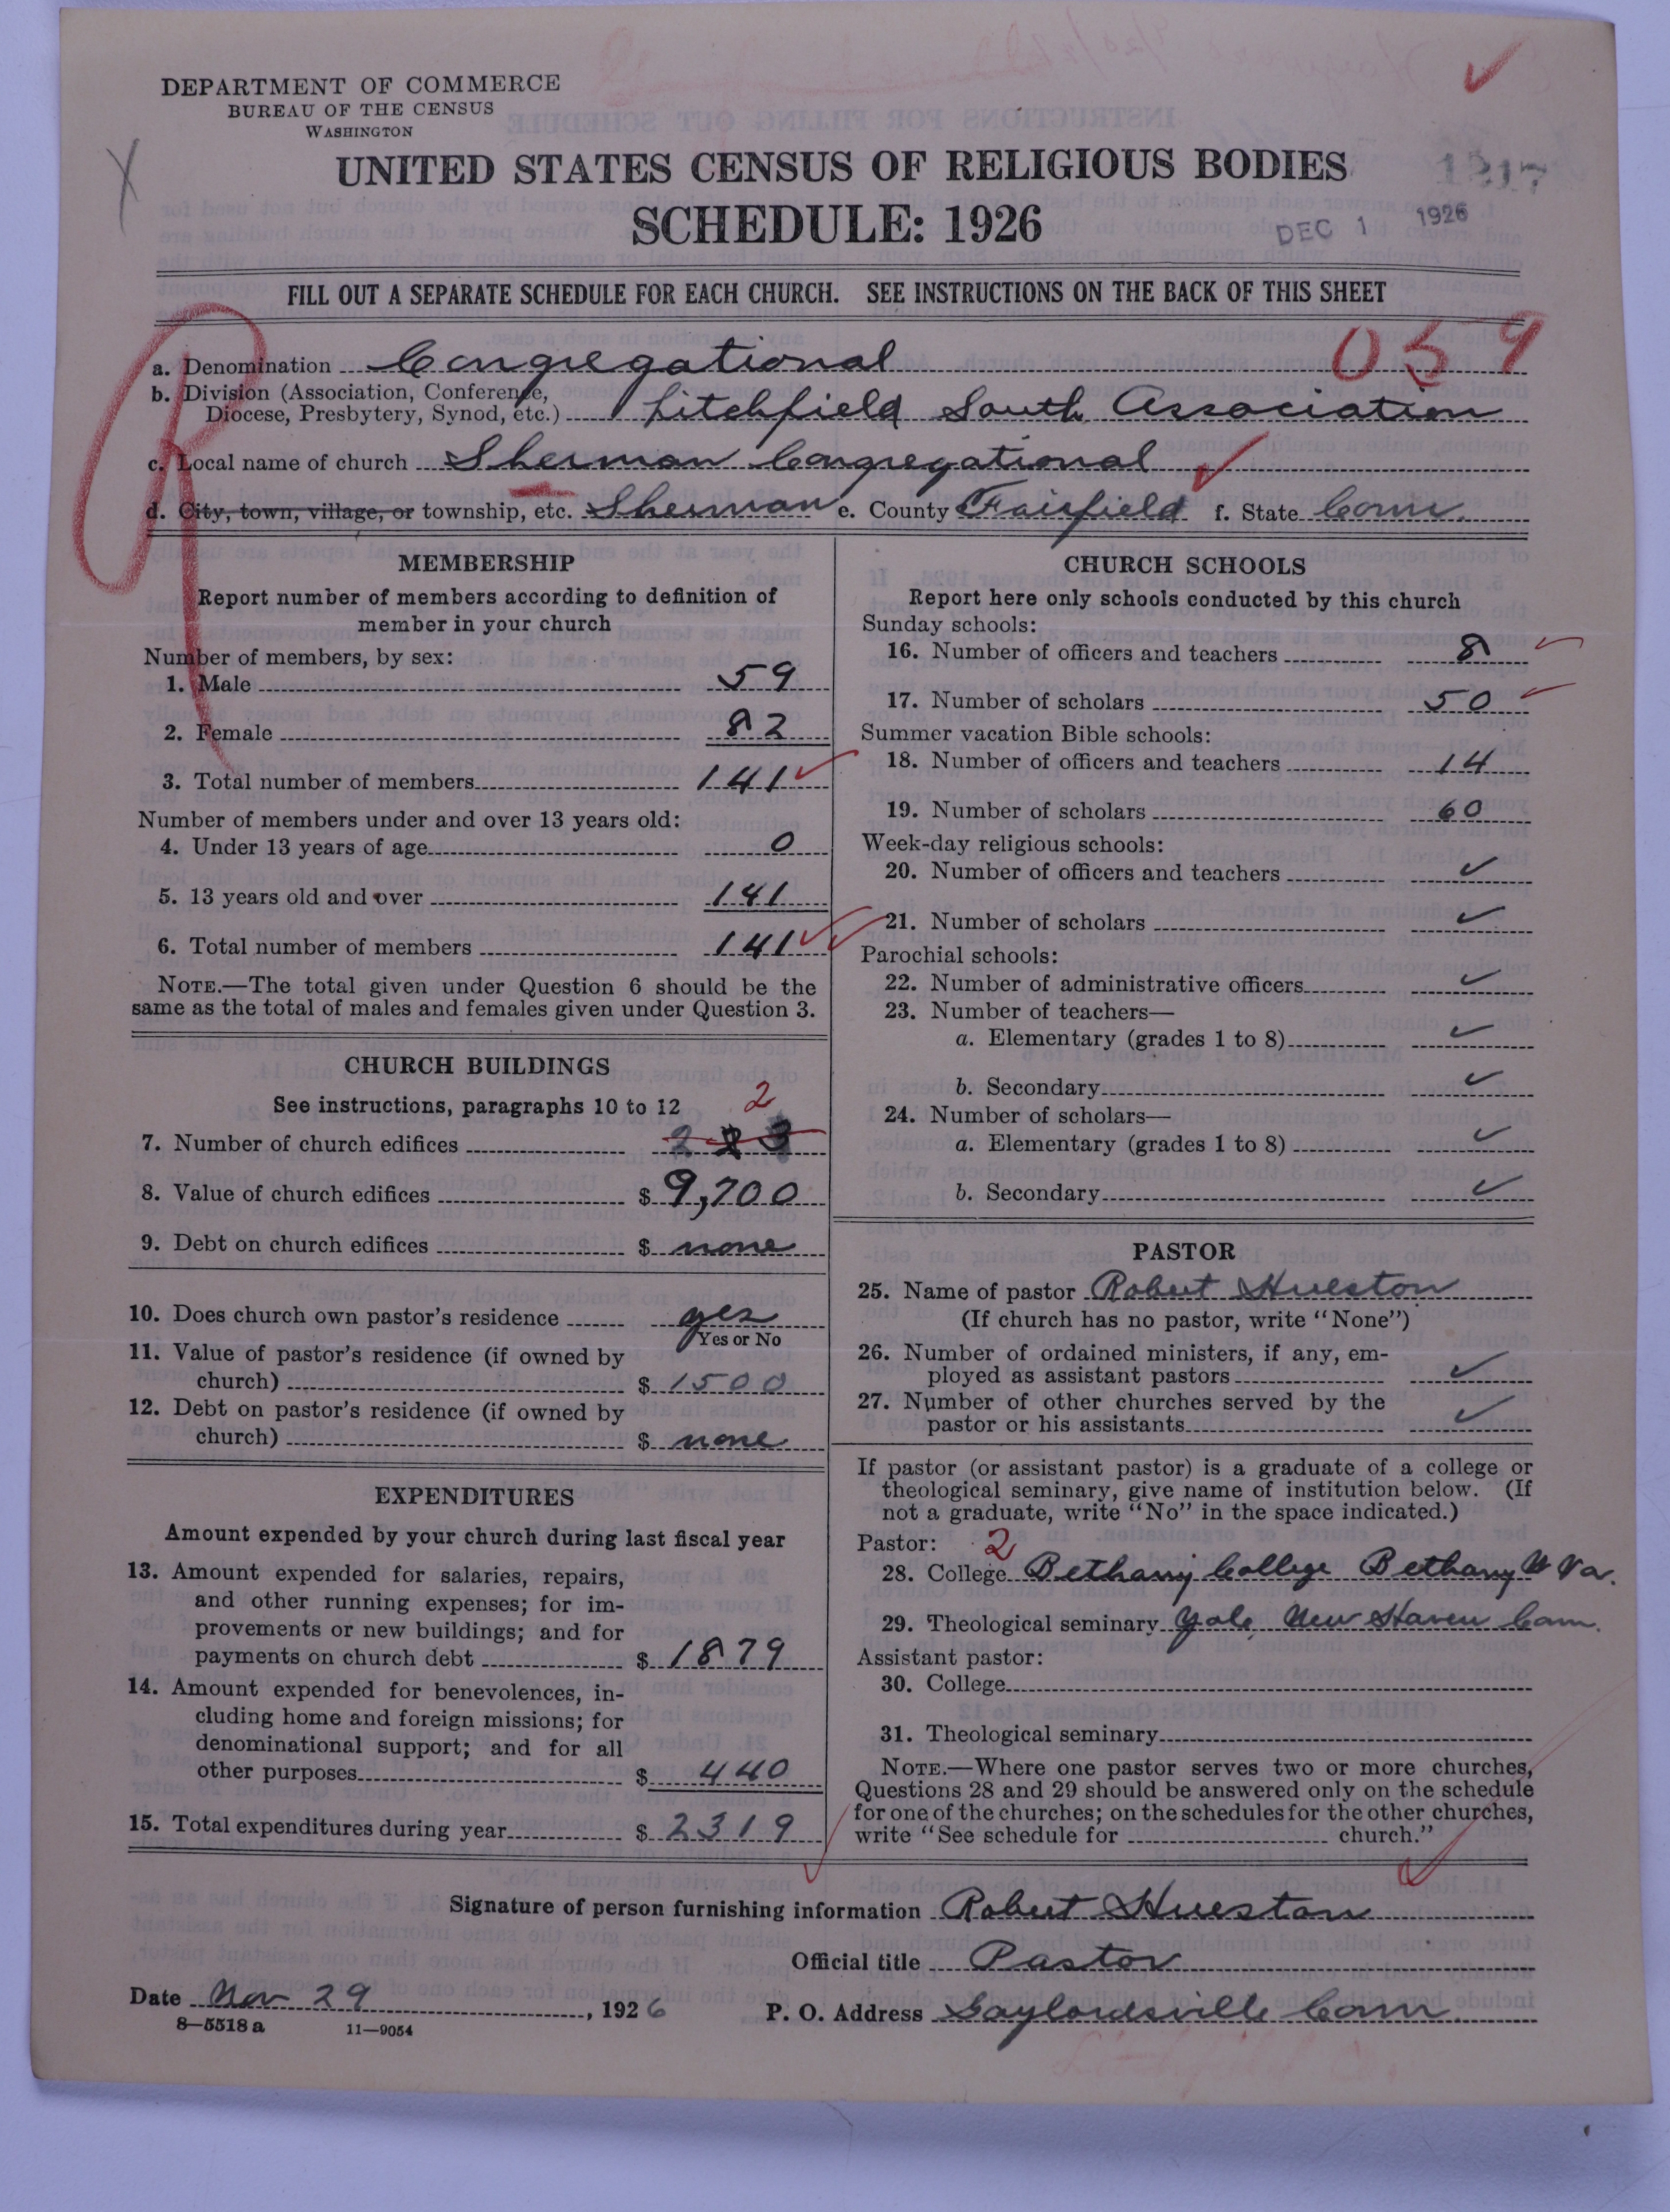 DEPARTMENT OF COMMERCE
BUREAU OF THE CENSUS
WASHINGTON
UNITED STATES CENSUS OF RELIGIOUS BODIES
SCHEDULE: 1926
1217
DEC 1 1926
FILL OUT A SEPARATE SCHEDULE FOR EACH CHURCH. SEE INSTRUCTIONS ON THE BACK OF THIS SHEET
R
059
a. Denomination Congregational
b. Division (Association, Conference,
Diocese, Presbytery, Synod, etc.) Litchfield South Association
c. Local name of church Sherman Congregational
d. City, town, village, or township, etc. Sherman e. County Fairfield f. State Conn.
MEMBERSHIP
Report number of members according to definition of
member in your church
Number of members, by sex:
1. Male 59
2. Female 82
3. Total number of members 141
Number of members under and over 13 years old:
4. Under 13 years of age 0
5. 13 years old and over 141
6. Total number of members 141
NOTE.—The total given under Question 6 should be the
same as the total of males and females given under Question 3.
CHURCH BUILDINGS
See instructions, paragraphs 10 to 12 2
7. Number of church edifices 2 2 3
8. Value of church edifices $ 9,700
9. Debt on church edifices $ none
10. Does church own pastor's residence yes
Yes or No
11. Value of pastor's residence (if owned by
church) $ 1500
12. Debt on pastor's residence (if owned by
church) $ none
EXPENDITURES
Amount expended by your church during last fiscal year
13. Amount expended for salaries, repairs,
and other running expenses; for im-
provements or new buildings; and for
payments on church debt $ 1879
14. Amount expended for benevolences, in-
cluding home and foreign missions; for
denominational support; and for all
other purposes $ 440
15. Total expenditures during year $ 2319
CHURCH SCHOOLS
Report here only schools conducted by this church
Sunday schools:
16. Number of officers and teachers 8
17. Number of scholars 50
Summer vacation Bible schools:
18. Number of officers and teachers 14
19. Number of scholars 60
Week-day religious schools:
20. Number of officers and teachers ✓
21. Number of scholars ✓
Parochial schools:
22. Number of administrative officers ✓
23. Number of teachers—
a. Elementary (grades 1 to 8) ✓
b. Secondary ✓
24. Number of scholars—
a. Elementary (grades 1 to 8) ✓
b. Secondary ✓
PASTOR
25. Name of pastor Robert Hueston
(If church has no pastor, write "None")
26. Number of ordained ministers, if any, em-
ployed as assistant pastors ✓
27. Number of other churches served by the
pastor or his assistants ✓
If pastor (or assistant pastor) is a graduate of a college or
theological seminary, give name of institution below. (If
not a graduate, write "No" in the space indicated.)
Pastor: 2
28. College Bethany College Bethany W Va.
29. Theological seminary Yale, New Haven Conn.
Assistant pastor:
30. College
31. Theological seminary
NOTE.—Where one pastor serves two or more churches,
Questions 28 and 29 should be answered only on the schedule
for one of the churches; on the schedules for the other churches,
write "See schedule for church."
Signature of person furnishing information Robert Hueston
Official title Pastor
Date Nov 29, 1926 P. O. Address Gaylordsville Conn.
8—5518 a 11—9054